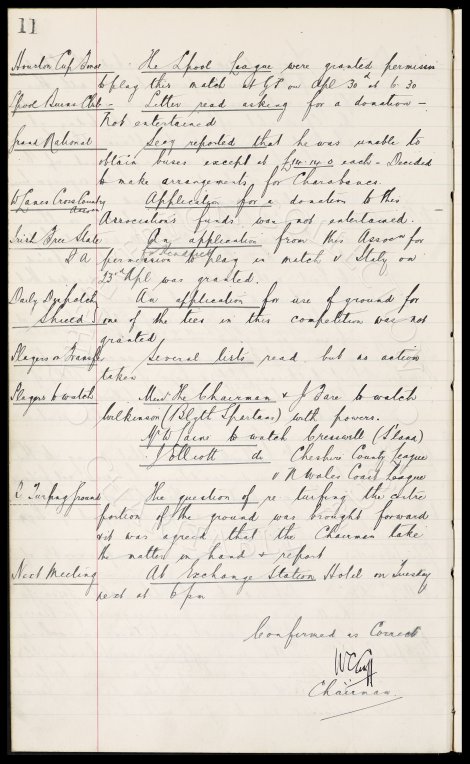 11
Houston Cup Final The Lpool League were granted permission
to play this match at G.P. on Apl 30th at 6.30
Lpool Burns Club - Letter read asking for a donation -
Not entertained
Grand National Secy reported that he was unable to
obtain buses except at £14.14.0 each - Decided
to make arrangements for Charabancs.
W Lancs Cross Country Assocn Application for a donation to this
Association's funds was not entertained.
Irish Free State An application from this Assocn for
F A permission to play in match v Italy on
23rd Apl was granted.
Daily Dispatch An application for use of ground for
Shield one of the ties in this competition was not
granted
Players on Transfer Several lists read but no action
taken
Players to watch The Chairman & J Fare to watch
Wilkinson (Blyth Spartans) with powers.
Mr W Caine to watch Cresswell
J Elliott do Cheshire County League
v N Wales Coast League
Turfing Ground The question of re turfing the entire
portion of the ground was brought forward
& it was agreed that the Chairman take
the matter in hand & report
Next Meeting At Exchange Station Hotel on Tuesday
next at 6 pm
Confirmed as Correct
W C Cuff
Chairman.